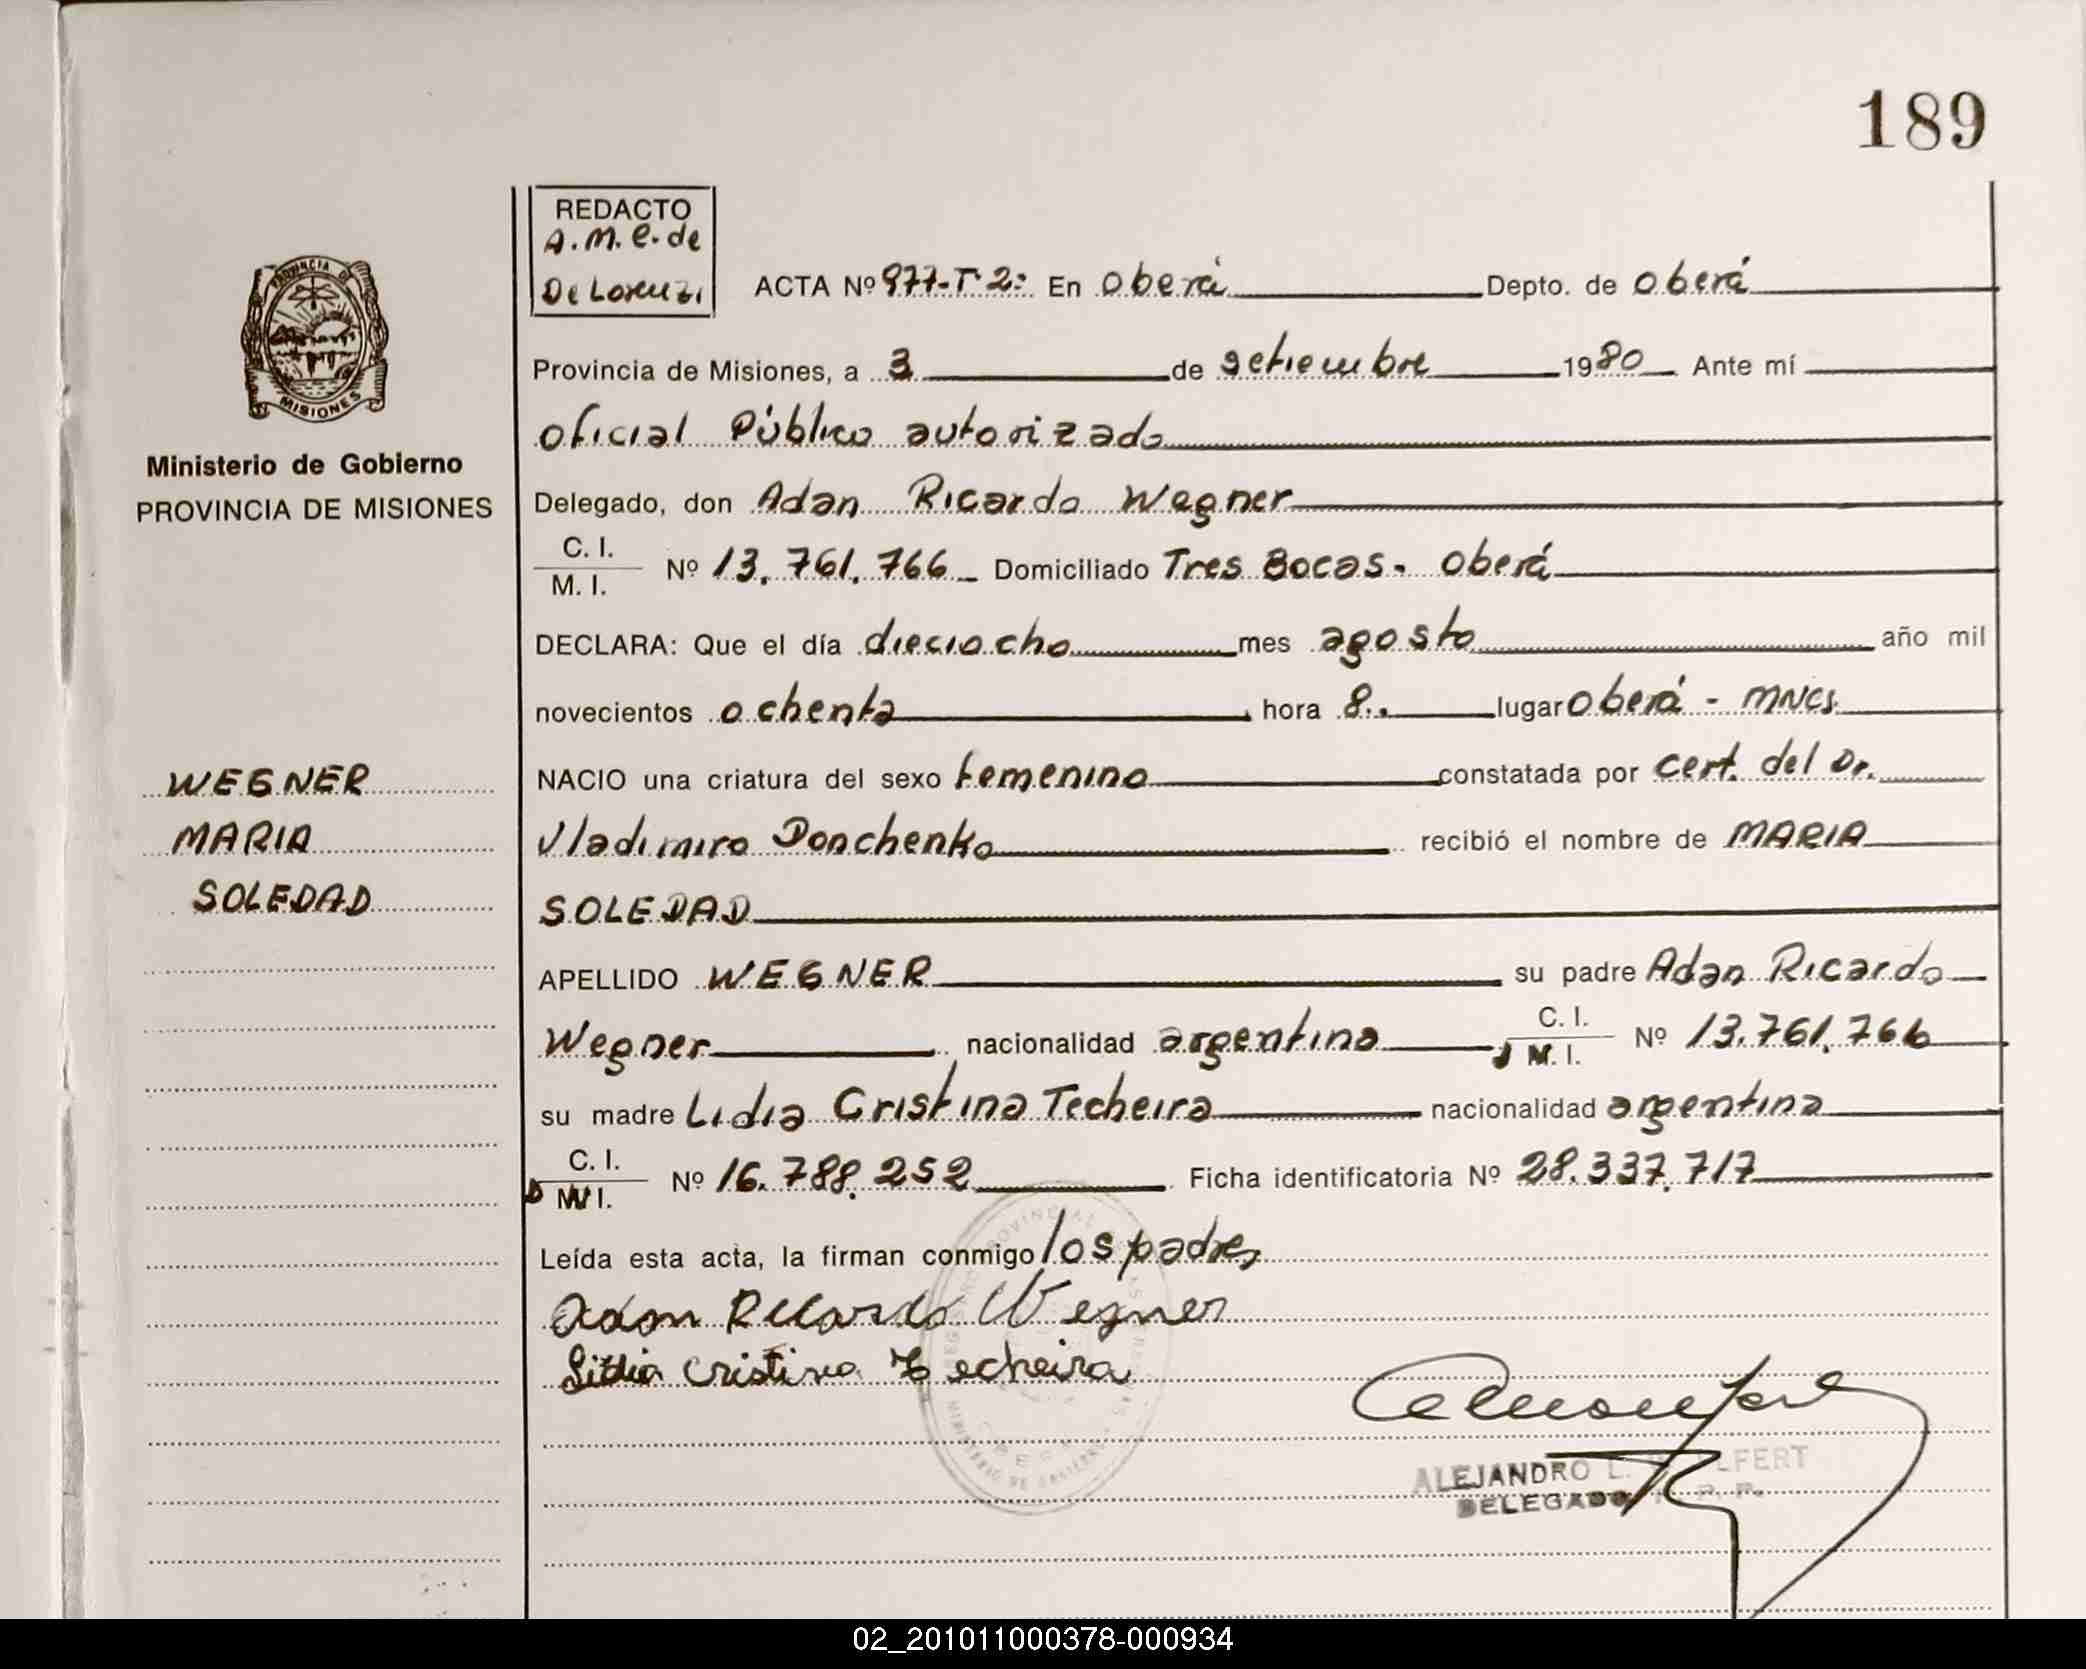 189
REDACTO
A.M.E. de
De Lorenzi
ACTA Nº 977-Tº 2º En Oberá Depto. de Oberá
PROVINCIA DE
MISIONES
Provincia de Misiones, a 3 de setiembre 1980 Ante mí
oficial Público autorizado
Ministerio de Gobierno
PROVINCIA DE MISIONES
Delegado, don Adan Ricardo Wegner
C. I.
M. I. Nº 13.761.766 Domiciliado Tres Bocas - Oberá
DECLARA: Que el día dieciocho mes agosto año mil
novecientos ochenta hora 8.. lugar Oberá - MNCS
WEGNER
MARIA
SOLEDAD
NACIO una criatura del sexo femenino constatada por cert. del Dr.
Vladimiro Donchenko recibió el nombre de MARIA
SOLEDAD
APELLIDO WEGNER su padre Adan Ricardo
Wegner nacionalidad argentina C. I. M. I. Nº 13.761.766
su madre Lidia Cristina Techeira nacionalidad argentina
C. I. M. I. Nº 16.788.252 Ficha identificatoria Nº 28.337.717
Leída esta acta, la firman conmigo los padres
Adan Ricardo Wegner
Lidia Cristina Techeira
ALEJANDRO L.
DELEGADO
02_201011000378-000934